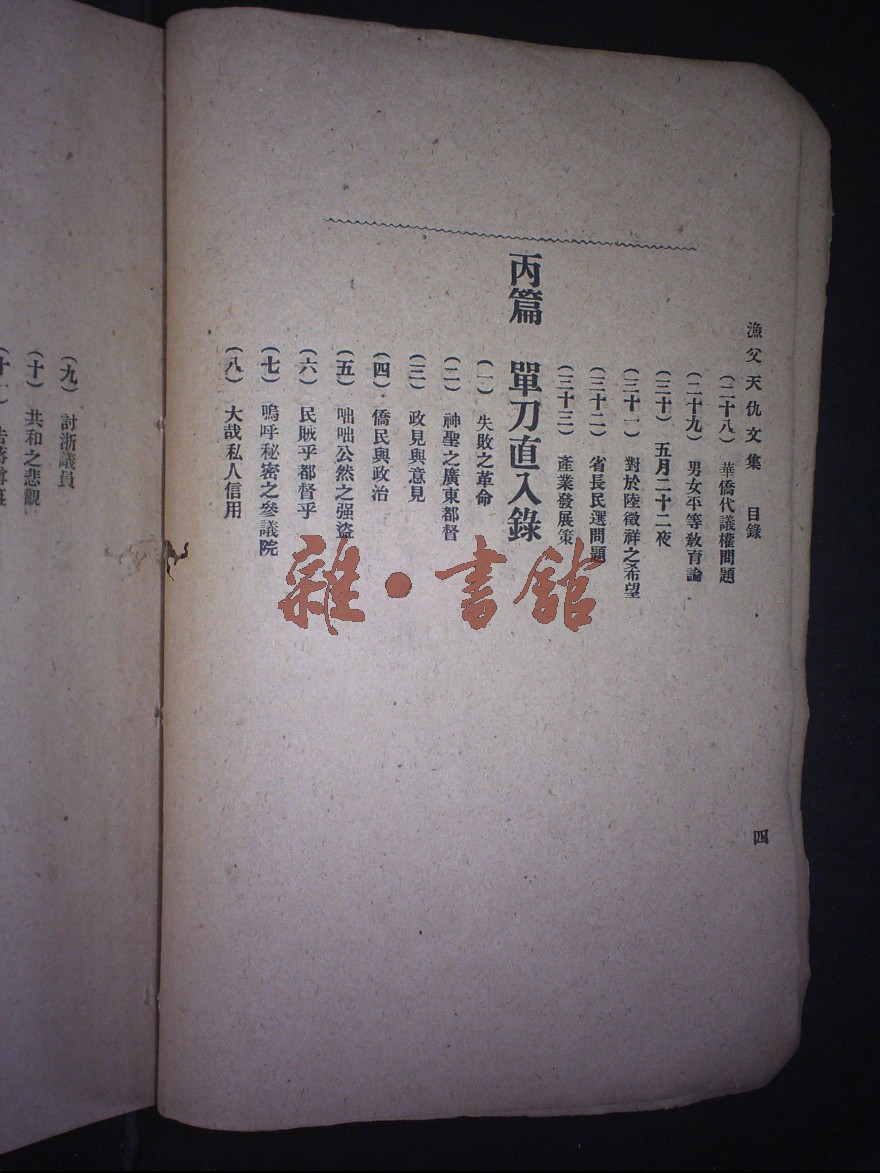 漁父天仇文集　目錄
四
（二十八）　華僑代議權問題
（二十九）　男女平等教育論
（三十）　五月二十二夜
（三十一）　對於陸徵祥之希望
（三十二）　省長民選問題
（三十三）　產業發展策
丙篇　單刀直入錄
（一）　失敗之革命
（二）　神聖之廣東都督
（三）　政見與意見
（四）　僑民與政治
（五）　咄咄公然之强盜
（六）　民賊乎都督乎
（七）　嗚呼秘密之參議院
（八）　大哉私人信用
（九）　討浙議員
（十）　共和之悲觀
雜·書館